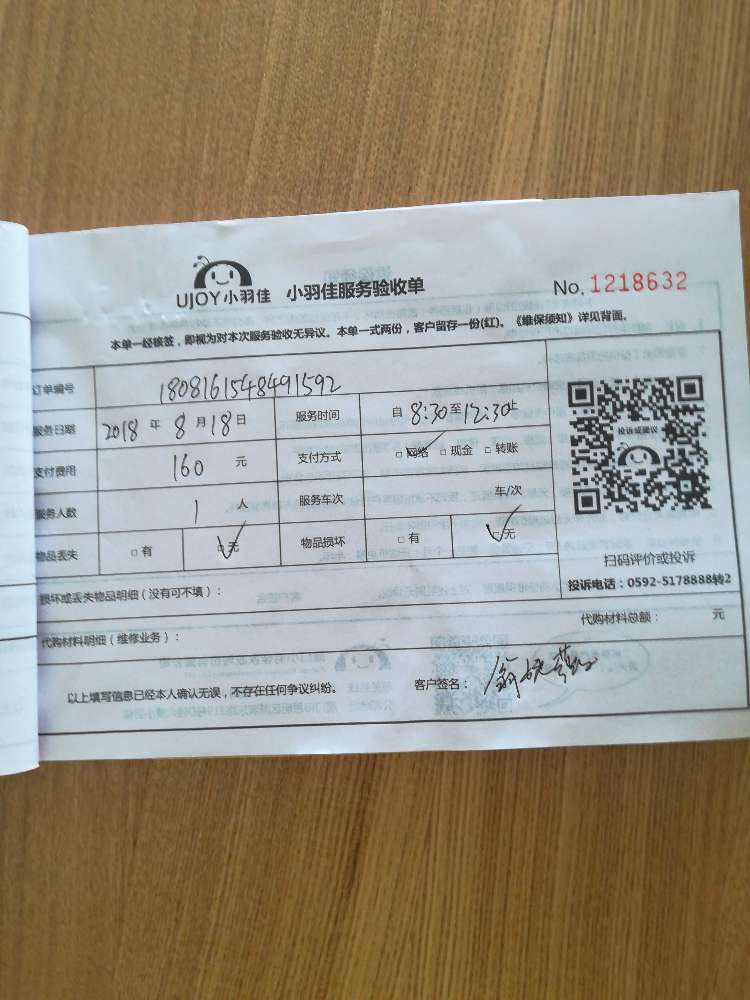 UJOY小羽佳 小羽佳服务验收单 No. 1218632
本单一经核签，即视为对本次服务验收无异议。本单一式两份，客户留存一份(红)。《维保须知》详见背面。
订单编号 1808161548491592
服务日期 2018 年 8 月 18 日 服务时间 自 8:30 至 12:30 止
支付费用 160 元 支付方式 □网络 □现金 □转账
服务人数 1 人 服务车次 车/次
物品丢失 □有 □无 物品损坏 □有 □无
投诉或建议
扫码评价或投诉
投诉电话：0592-5178888转2
损坏或丢失物品明细（没有可不填）：
代购材料明细（维修业务）： 代购材料总额： 元
以上填写信息已经本人确认无误，不存在任何争议纠纷。 客户签名：